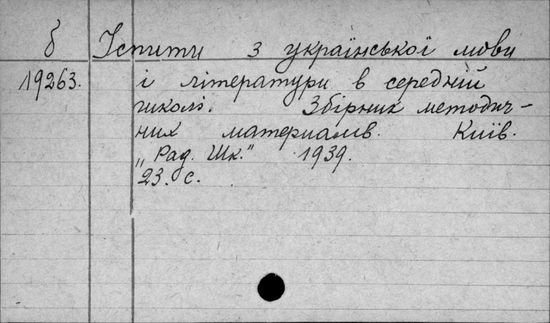 б Іспити з української мови
19263. і літератури в середній
школі. Збірник методич-
них материалів. Київ.
„Рад. Шк." 1939.
23. с.